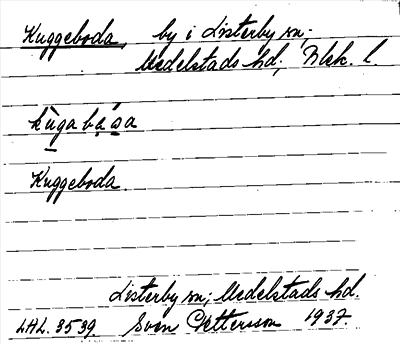 Kuggeboda, by i Listerby sn;
Medelstads hd; Blek. l.
Kuggeboda
Listerby sn; Medelstads hd.
LAL. 3539 Sven Pettersson 1937.